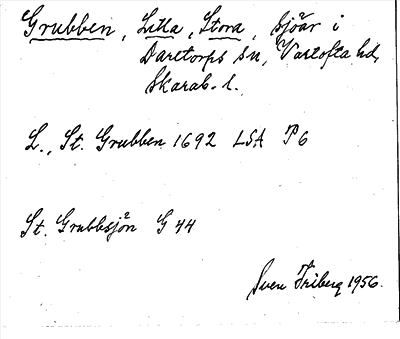 Grubben, Lilla, Stora, sjöar i
Daretorps sn, Vartofta hd,
Skarab. l.
L., St. Grubben 1692 LSA P6
St. Grubbsjön G 44
Sven Friberg 1956.